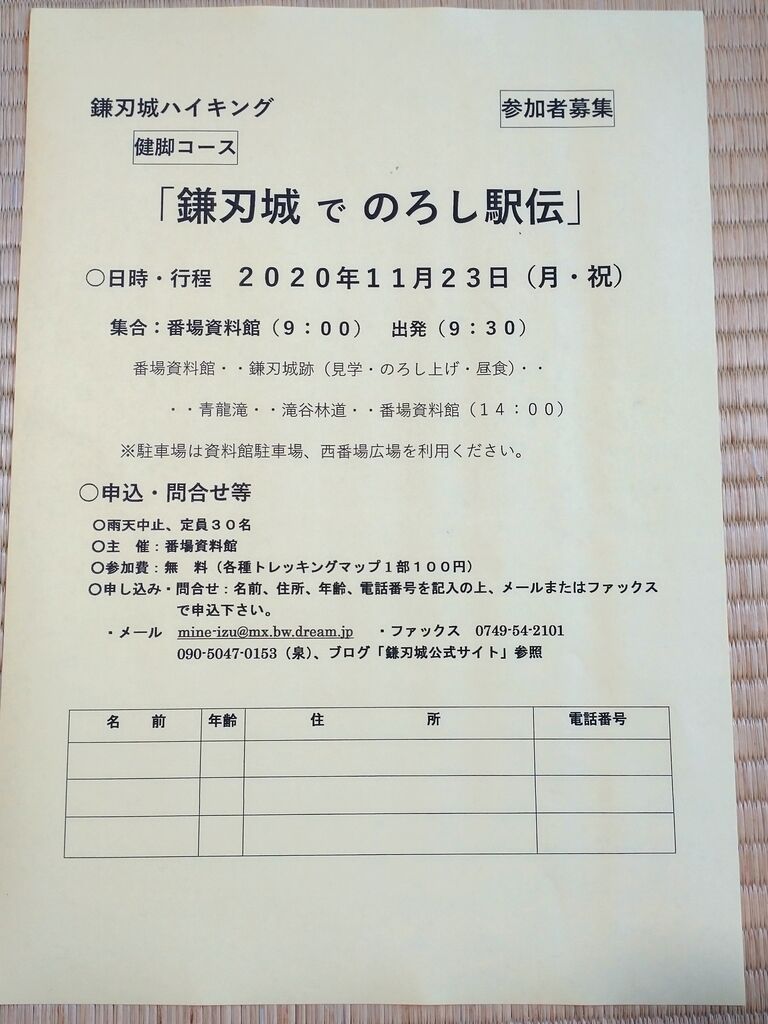 鎌刃城ハイキング
参加者募集
健脚コース
「鎌刃城 で のろし駅伝」
○日時・行程 ２０２０年１１月２３日（月・祝）
集合：番場資料館（９：００） 出発（９：３０）
番場資料館・・鎌刃城跡（見学・のろし上げ・昼食）・・
・・青龍滝・・滝谷林道・・番場資料館（１４：００）
※駐車場は資料館駐車場、西番場広場を利用ください。
○申込・問合せ等
○雨天中止、定員３０名
○主　催：番場資料館
○参加費：無　料（各種トレッキングマップ１部１００円）
○申し込み・問合せ：名前、住所、年齢、電話番号を記入の上、メールまたはファックス
で申込下さい。
・メール mine-izu@mx.bw.dream.jp ・ファックス 0749-54-2101
090-5047-0153（泉）、ブログ「鎌刃城公式サイト」参照
名　前 年齢 住　所 電話番号